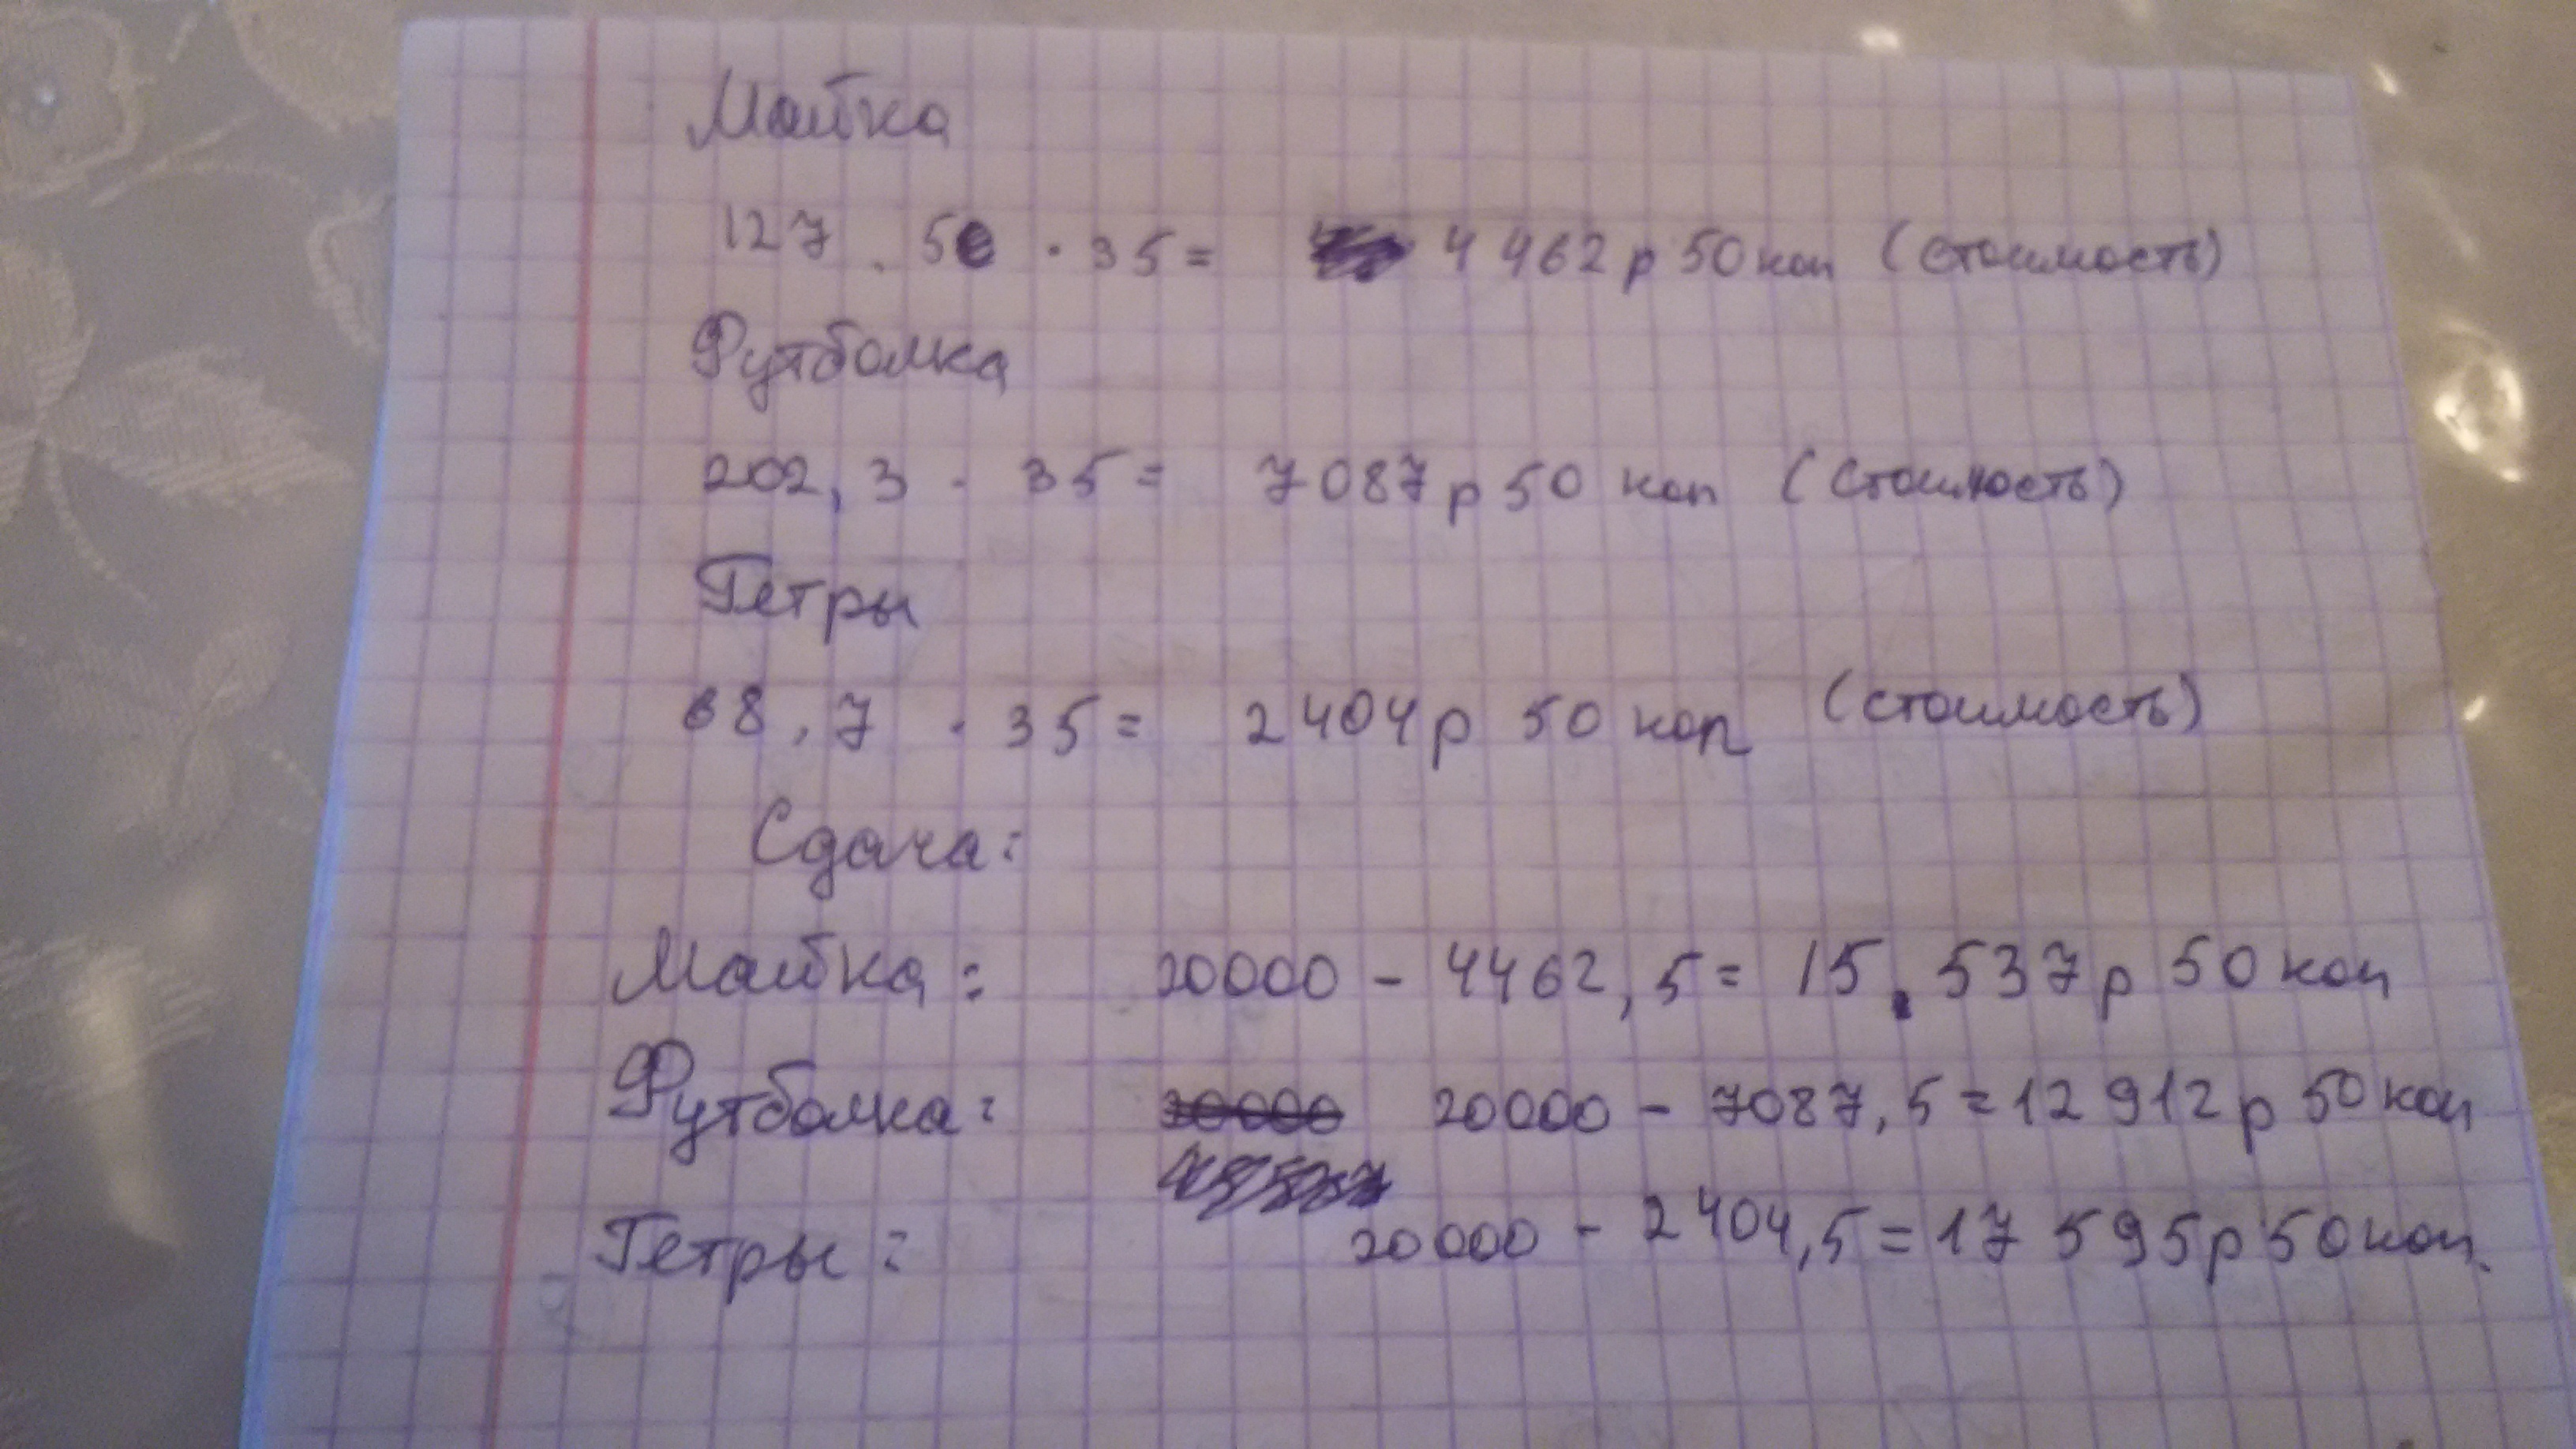 Майка
127.5 · 35 = 4 462 р 50 коп (стоимость)
Футболка
202,3 · 35 = 7087 р 50 коп (стоимость)
Гетры
68,7 · 35 = 2404 р 50 коп (стоимость)
Сдача:
Майка: 20000 - 4462,5 = 15.537 р 50 коп
Футболка: 20000 20000 - 7087,5 = 12 912 р 50 коп
Гетры: 20000 - 2404,5 = 17 595 р 50 коп.